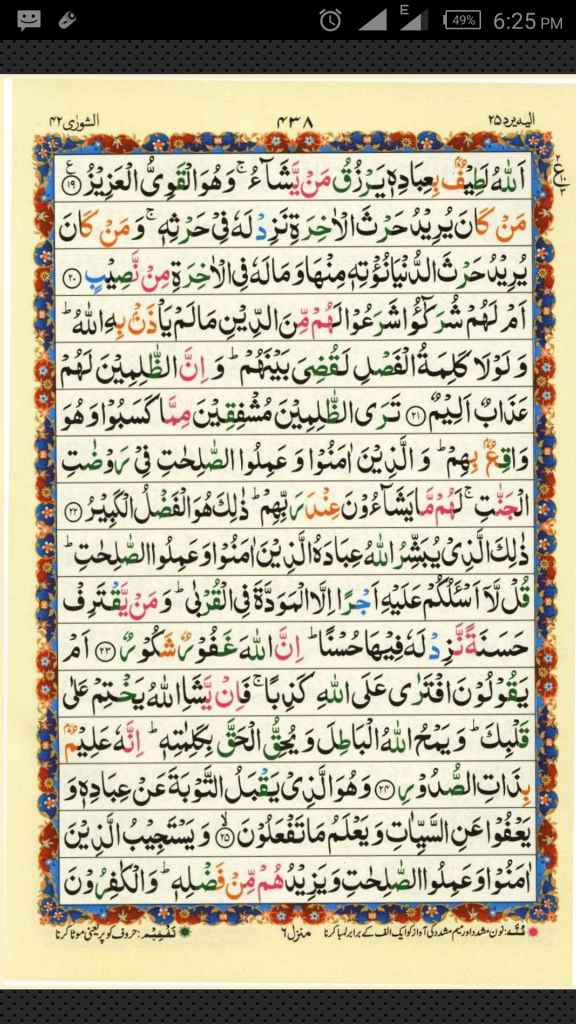 E 49% 6:25 PM
الیه یرد ۲۵ ۴۳۸ الشورٰی ۴۲
اَللّٰهُ لَطِیْفٌۢ بِعِبَادِهٖ یَرْزُقُ مَنْ یَّشَآءُ ۚ وَ هُوَ الْقَوِیُّ الْعَزِیْزُ ۟﴿۱۹﴾
مَنْ كَانَ یُرِیْدُ حَرْثَ الْاٰخِرَةِ نَزِدْ لَهٗ فِیْ حَرْثِهٖ ۚ وَ مَنْ كَانَ
یُرِیْدُ حَرْثَ الدُّنْیَا نُؤْتِهٖ مِنْهَا وَ مَا لَهٗ فِی الْاٰخِرَةِ مِنْ نَّصِیْبٍ ﴿۲۰﴾
اَمْ لَهُمْ شُرَكٰٓؤُا شَرَعُوْا لَهُمْ مِّنَ الدِّیْنِ مَا لَمْ یَاْذَنْۢ بِهِ اللّٰهُ ؕ
وَ لَوْ لَا كَلِمَةُ الْفَصْلِ لَقُضِیَ بَیْنَهُمْ ؕ وَ اِنَّ الظّٰلِمِیْنَ لَهُمْ
عَذَابٌ اَلِیْمٌ ﴿۲۱﴾ تَرَی الظّٰلِمِیْنَ مُشْفِقِیْنَ مِمَّا كَسَبُوْا وَ هُوَ
وَاقِعٌۢ بِهِمْ ؕ وَ الَّذِیْنَ اٰمَنُوْا وَ عَمِلُوا الصّٰلِحٰتِ فِیْ رَوْضٰتِ
الْجَنّٰتِ ۚ لَهُمْ مَّا یَشَآءُوْنَ عِنْدَ رَبِّهِمْ ؕ ذٰلِكَ هُوَ الْفَضْلُ الْكَبِیْرُ ﴿۲۲﴾
ذٰلِكَ الَّذِیْ یُبَشِّرُ اللّٰهُ عِبَادَهُ الَّذِیْنَ اٰمَنُوْا وَ عَمِلُوا الصّٰلِحٰتِ ؕ
قُلْ لَّاۤ اَسْـَٔلُكُمْ عَلَیْهِ اَجْرًا اِلَّا الْمَوَدَّةَ فِی الْقُرْبٰی ؕ وَ مَنْ یَّقْتَرِفْ
حَسَنَةً نَّزِدْ لَهٗ فِیْهَا حُسْنًا ؕ اِنَّ اللّٰهَ غَفُوْرٌ شَكُوْرٌ ﴿۲۳﴾ اَمْ
یَقُوْلُوْنَ افْتَرٰی عَلَی اللّٰهِ كَذِبًا ۚ فَاِنْ یَّشَاِ اللّٰهُ یَخْتِمْ عَلٰی
قَلْبِكَ ؕ وَ یَمْحُ اللّٰهُ الْبَاطِلَ وَ یُحِقُّ الْحَقَّ بِكَلِمٰتِهٖ ؕ اِنَّهٗ عَلِیْمٌۢ
بِذَاتِ الصُّدُوْرِ ﴿۲۴﴾ وَ هُوَ الَّذِیْ یَقْبَلُ التَّوْبَةَ عَنْ عِبَادِهٖ وَ
یَعْفُوْا عَنِ السَّیِّاٰتِ وَ یَعْلَمُ مَا تَفْعَلُوْنَ ﴿۲۵﴾ۙ وَ یَسْتَجِیْبُ الَّذِیْنَ
اٰمَنُوْا وَ عَمِلُوا الصّٰلِحٰتِ وَ یَزِیْدُهُمْ مِّنْ فَضْلِهٖ ؕ وَ الْكٰفِرُوْنَ
غنّہ: نون مشدد اور میم مشدد کی آواز کو ایک الف کے برابر لمبا کرنا منزل ۶ تفخیم: حروف کو پُر یعنی موٹا کرنا